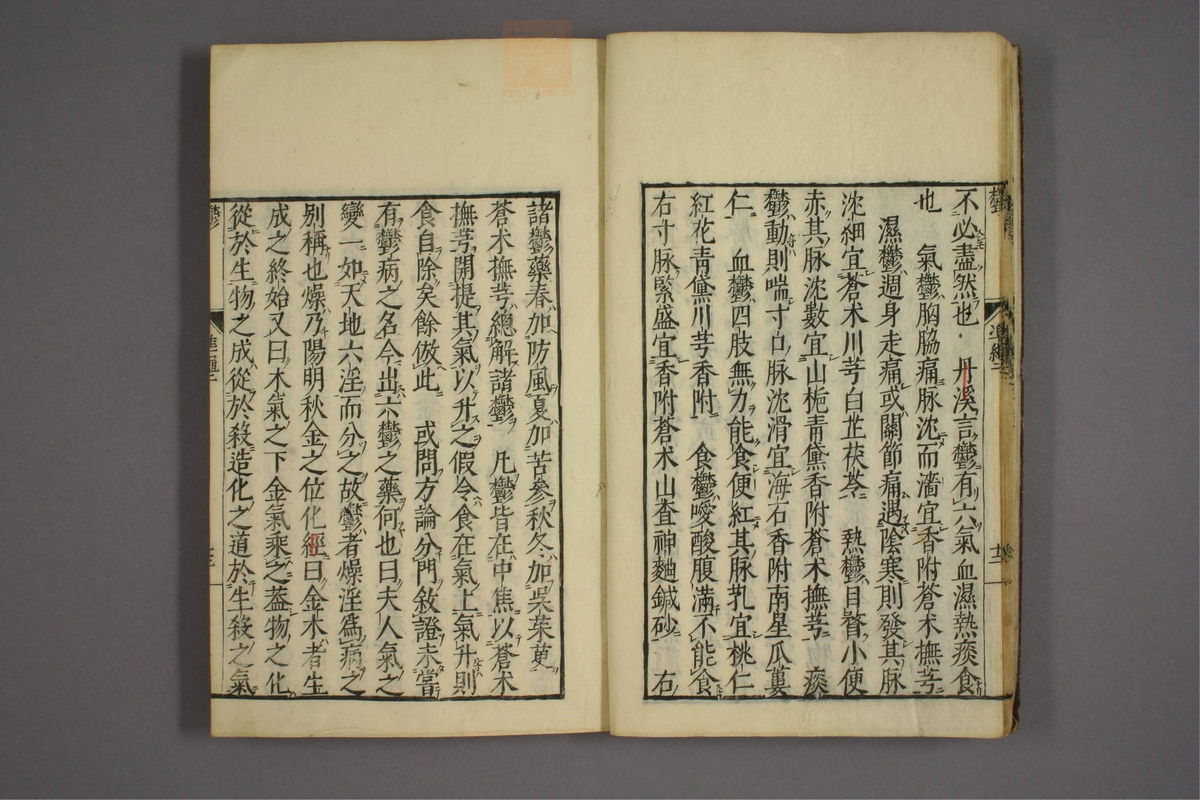 不必盡然也 丹溪言鬱有六氣血濕熱痰食
也 氣鬱胸脇痛脉沈而濇宜香附蒼术撫芎
濕鬱週身走痛或關節痛遇陰寒則發其脉
沈細宜蒼术川芎白芷茯苓 熱鬱目瞀小便
赤其脉沈數宜山梔青黛香附蒼术撫芎 痰
鬱動則喘寸口脉沈滑宜海石香附南星瓜蔞
仁 血鬱四肢無力能食便紅其脉芤宜桃仁
紅花青黛川芎香附 食鬱噯酸腹滿不能食
右寸脉緊盛宜香附蒼术山査神麯鍼砂 右
諸鬱藥春加防風夏加苦參秋冬加吳茱萸
蒼术撫芎總解諸鬱 凡鬱皆在中焦以蒼术
撫芎開提其氣以升之假令食在氣上氣升則
食自除矣餘倣此 或問方論分門敘證未嘗
有鬱病之名今出六鬱之藥何也曰夫人氣之
變一如天地六淫而分之故鬱者燥淫爲病之
別稱也燥乃陽明秋金之位化經曰金木者生
成之終始又曰木氣之下金氣乘之蓋物之化
從於生物之成從於殺造化之道於生殺之氣
鬱